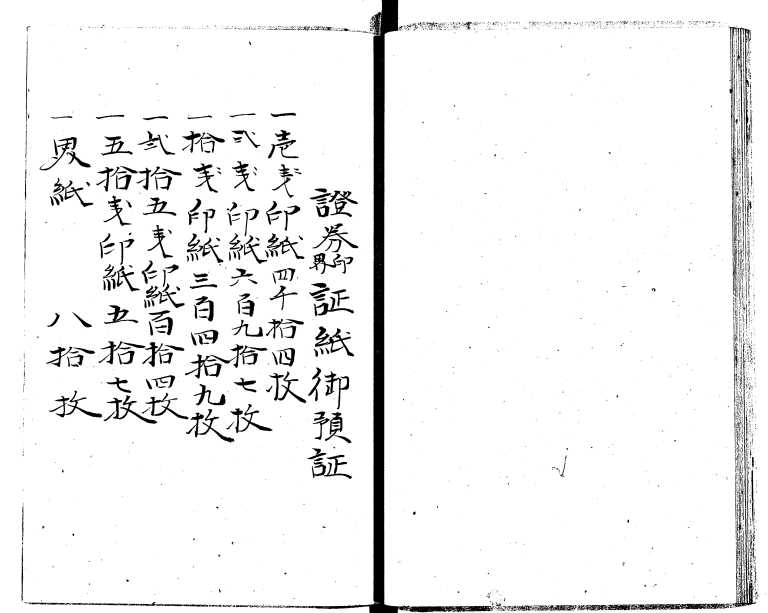 證券印界証紙御預証
一壱銭印紙四千拾四枚
一弐銭印紙六百九拾七枚
一拾銭印紙三百四拾九枚
一弐拾五銭印紙百拾四枚
一五拾銭印紙五拾七枚
一界紙八拾枚